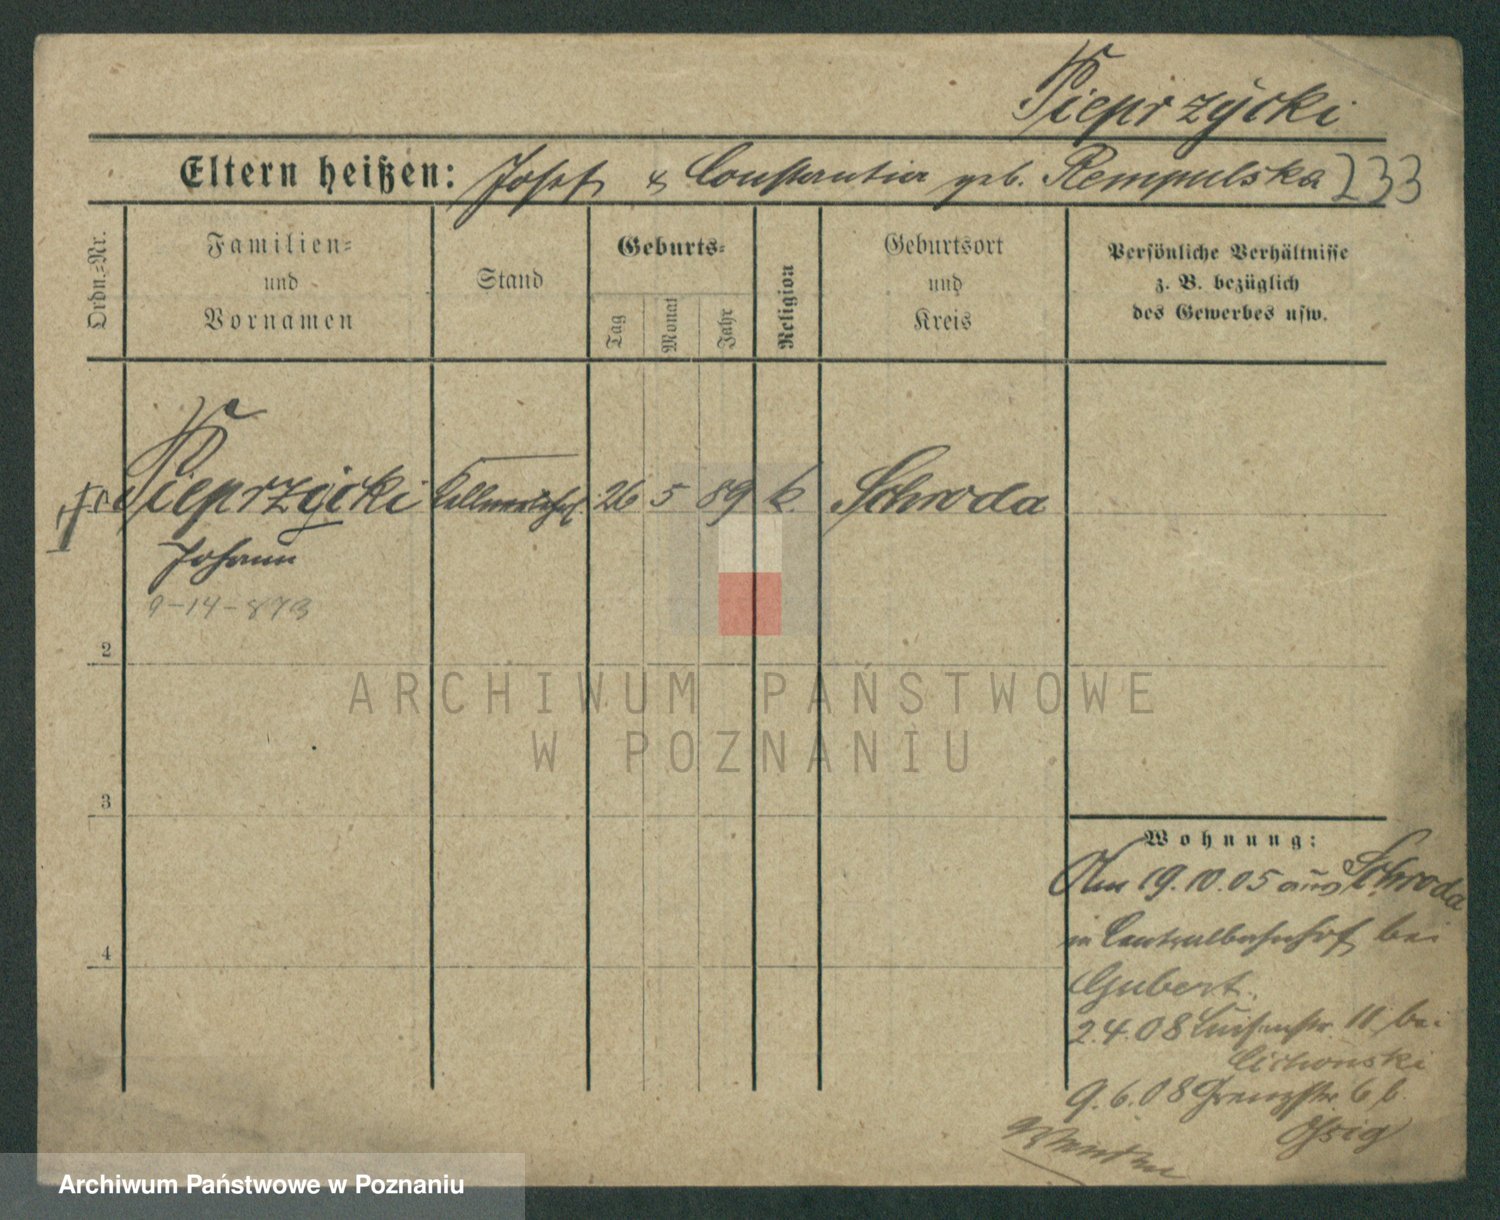 Pieprzycki
Eltern heißen: Josef & Constantia geb. Rempulska 233
Ordn.=Nr.
Familien=
und
Vornamen
Stand
Geburts=
Tag
Monat
Jahr
Religion
Geburtsort
und
Kreis
Persönliche Verhältnisse
z. B. bezüglich
des Gewerbes usw.
Pieprzycki Kellnerlehrl. 26 5 89 k. Schroda
Johann
9-14-873
2
3
4
ARCHIWUM PAŃSTWOWE
W POZNANIU
Wohnung:
Am 19.10.05 aus Schroda
in Centralbahnhof bei
Gubert.
2.4.08 Luisenstr. 11 bei
Cichonski
9.6.08 Grenzstr. 6 b.
Archiwum Państwowe w Poznaniu